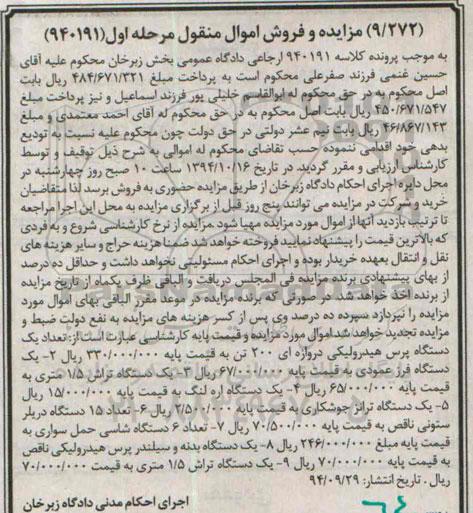 (۹/۲۷۲) مزایده و فروش اموال منقول مرحله اول(۹۴۰۱۹۱)
به موجب پرونده کلاسه ۹۴۰۱۹۱ ارجاعی دادگاه عمومی بخش زبرخان محکوم علیه آقای
حسین غنمی فرزند صفرعلی محکوم است به پرداخت مبلغ ۴۸۴/۶۷۱/۳۲۱ ریال بابت
اصل محکوم به در حق محکوم له ابوالقاسم خلیلی پور فرزند اسماعیل و نیز پرداخت مبلغ
۴۵۰/۶۷۱/۵۴۷ ریال بابت اصل محکوم به در حق محکوم له آقای احمد معتمدی و مبلغ
۴۶/۸۶۷/۱۴۳ ریال بابت نیم عشر دولتی در حق دولت چون محکوم علیه نسبت به تودیع
بدهی خود اقدامی ننموده حسب تقاضای محکوم له اموالی به شرح ذیل توقیف و توسط
کارشناس ارزیابی و مقرر گردید. در تاریخ ۱۳۹۴/۱۰/۱۶ ساعت ۱۰ صبح روز چهارشنبه در
محل دایره اجرای احکام دادگاه زبرخان از طریق مزایده حضوری به فروش برسد لذا متقاضیان
خرید و شرکت در مزایده می توانند پنج روز قبل از برگزاری مزایده به محل این اجرا مراجعه
تا ترتیب بازدید آنها از اموال مورد مزایده مهیا شود. مزایده از نرخ کارشناسی شروع و به فردی
که بالاترین قیمت را پیشنهاد نماید فروخته خواهد شد ضمنا هزینه حراج و سایر هزینه های
نقل و انتقال بعهده خریدار بوده و اجرای احکام مسئولیتی نخواهد داشت و حداقل ده درصد
از بهای پیشنهادی برنده مزایده فی المجلس دریافت و الباقی ظرف یکماه از تاریخ مزایده
از برنده اخذ خواهد شد. در صورتی که برنده مزایده در موعد مقرر الباقی بهای اموال مورد
مزایده را نپردازد سپرده ده درصد وی پس از کسر هزینه های مزایده به نفع دولت ضبط و
مزایده تجدید خواهد شد.اموال مورد مزایده و قیمت پایه کارشناسی عبارت است از: تعداد یک
دستگاه پرس هیدرولیکی دروازه ای ۲۰۰ تن به قیمت پایه ۳۳۰/۰۰۰/۰۰۰ ریال ۲- یک
دستگاه فرز عمودی به قیمت پایه ۶۷/۰۰۰/۰۰۰ ریال ۳- یک دستگاه تراش ۱/۵ متری به
قیمت پایه ۶۵/۰۰۰/۰۰۰ ریال ۴- یک دستگاه اره لنگ به قیمت پایه ۱۵/۰۰۰/۰۰۰ ریال
۵- یک دستگاه ترانز جوشکاری به قیمت پایه ۲/۵۰۰/۰۰۰ ریال ۶- تعداد ۱۵ دستگاه دریلر
ستونی ناقص به قیمت پایه ۷۰/۵۰۰/۰۰۰ ریال ۷- تعداد ۶ دستگاه شاسی حمل سواری به
قیمت پایه مبلغ ۲۴۶/۰۰۰/۰۰۰ ریال ۸- یک دستگاه بدنه و سیلندر پرس هیدرولیکی ناقص
به قیمت پایه ۷۰/۰۰۰/۰۰۰ ریال ۹- یک دستگاه تراش ۱/۵ متری به قیمت ۷۰/۰۰۰/۰۰۰
ریال . تاریخ انتشار: ۹۴/۰۹/۲۹
اجرای احکام مدنی دادگاه زبرخان